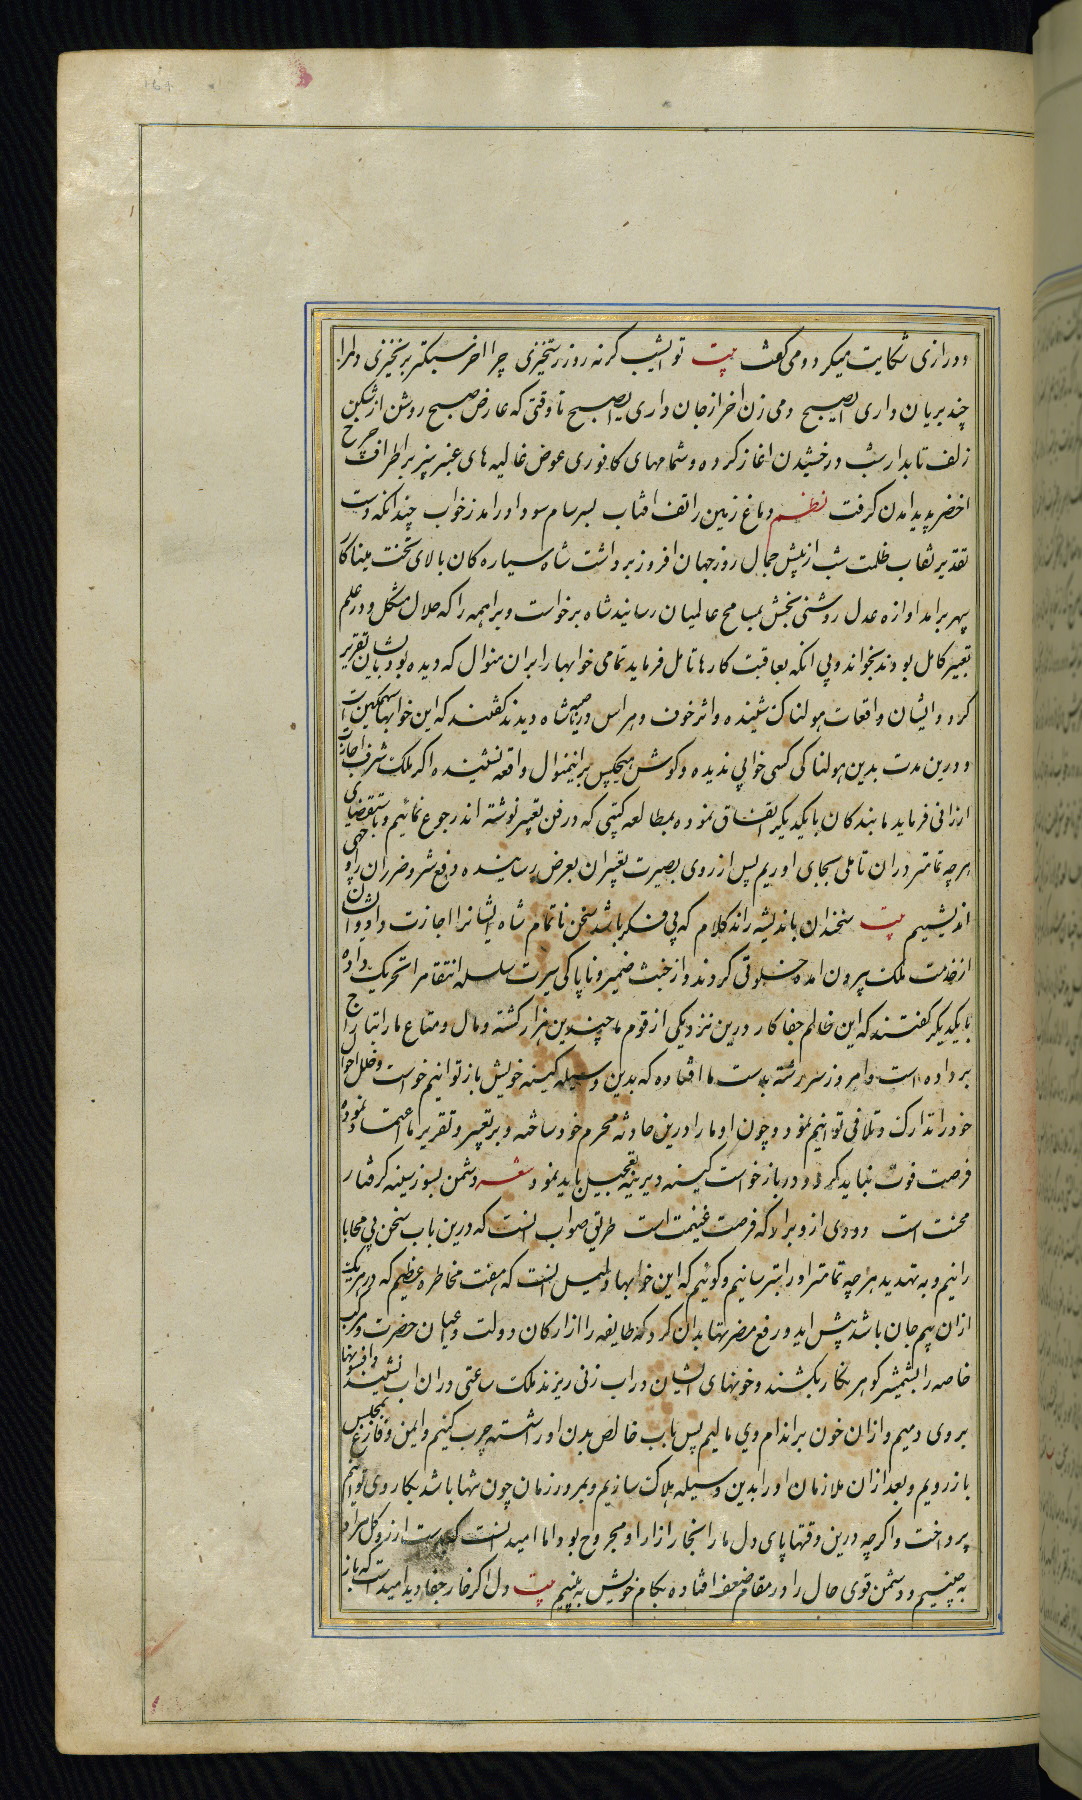 و درازی شکایت میکرد و می گفت بیت تو ایشب کرنه روز رستخیزی چرا اخر سبکتر برنخیزی دلرا
چند بریان داری ایصبح دمی زن اخر از جان داری ایصبح تا وقتی که عارض صبح روشن از شکین
زلف تابدار شب درخشیدن اغاز کرده و شمامهای کافوری عوض غالیه های عنبر بیز بر اطراف چرخ
اخضر پدید امدن کرفت نظم دماغ زمین را تف افتاب بسرسام سودا ورامد زخواب چندانکه دست
تقدیر نقاب ظلمت شب از پیش جمال روز جهان افروز برداشت شاه سیاره کان بالای تخت مینا کار
سپهر برامد اوازه عدل روشنی بخش بمسامع عالمیان رسانید شاه برخواست و براهمه را که حلال مشکل و در علم
تعبیر کامل بودند بخواند و بی انکه بعاقبت کارها تامل فرماید تمامی خوابها را بران منوال که دیده بود بایشان تقریر
کرد و ایشان واقعات هولناک شنیده و اثر خوف و هراس در ناصیه شاه دیدند گفتند که این خوابها سهمکین است
و درین مدت بدین هولناکی کسی خوابی ندیده و کوش هیچکس برانیمنوال واقعه نشنیده اکر ملک شرف اجازت
ارزانی فرماید ما بندکان بایکدیکر اتفاق نموده بمطالعه کتبی که در فن تعبیر نوشته اند رجوع نمائیم و باستقصای
هرچه تمامتر دران تاملی بجای اوریم پس از روی بصیرت تعبیران بعرض رسانیده دفع شر و ضرر ان را وجهی
اندیشیم بیت سخندان باندیشه راند کلام که بی فکر باشد سخن ناتمام شاه ایشانرا اجازت داد و ایشان
از خدمت ملک بیرون امده خلوتی کردند و از خبث ضمیر و ناپاکی سیرت سلسله انتقامرا تحریک داده
بایکدیکر گفتند که این ظالم جفا کار درین نزدیکی از قوم ما چندین هزار کشته و مال و متاع ما را بتاراج
برداده است و امروز سررشته بدست ما افتاده که بدین وسیله کینه خویش باز توانیم خواست و خلل احوال
خود را تدارک و تلافی توانیم نمود و چون او ما را درین حادثه محرم خود ساخته و بر تعبیر و تقریر ما اعتماد نموده
فرصت فوت نباید کرد و در باز خواست کینه دیرینه تعجیل باید نمود شعر دشمن بسوز سینه کرفتار
محنت است دودی از و برار که فرصت غنیمت است طریق صواب انست که درین باب سخن بی محابا
رانیم و به تهدید هرچه تمامتر او را بترسانیم و کوئیم که این خوابها دلیل انست که هفت مخاطره عظیم که در هریک
ازان بیم جان باشد پیش اید و رفع مضرتها بدان کرد که طایفه را از ارکان دولت و اعیان حضرت و مرکب
خاصه را بشمشیر کوهر نکار بکشند و خونهای ایشان در اب زنی ریزند ملک ساعتی دران اب نشیند و افسونها
بر وی دمیم و ازان خون بر اندام وی مالیم پس باب خالص بدن او را شسته چرب کنیم و ایمن و فارغ بمجلس
باز رویم و بعد ازان ملازمان او را بدین وسیله هلاک سازیم و بمرور زمان چون تنها باشد بکار وی توانیم
پرداخت و اکرچه درین وقتها پای دل ما را بخار ازار او مجروح بود اما امید انست که بدست ارزو کل مراد
به چینیم و دشمن قوی حال را در مقام ضعف افتاده بکام خویش به بینیم بیت دل اکر خار جفا دید امید است که باز